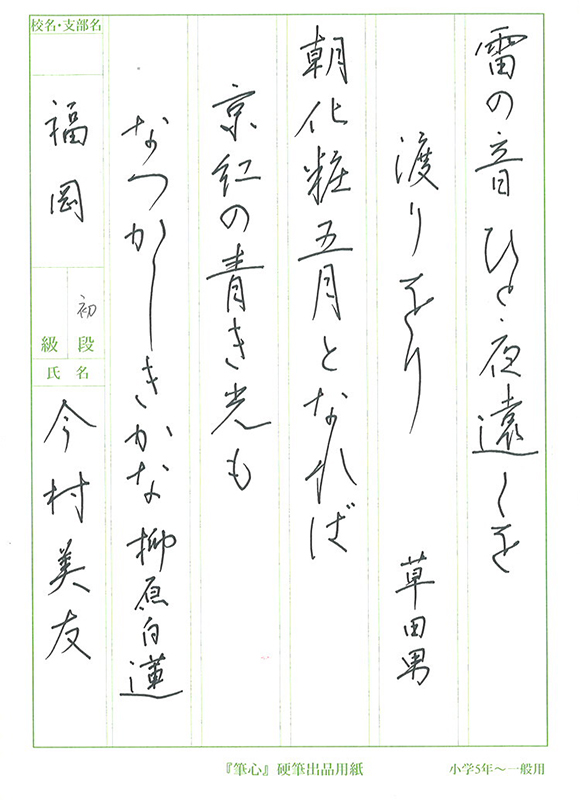 雷の音ひと夜遠くを
渡りをり 草田男
朝化粧五月となれば
京紅の青き光も
なつかしきかな 柳原白蓮
校名・支部名
福岡
初段
級
氏名
今村美友
『筆心』硬筆出品用紙
小学5年〜一般用